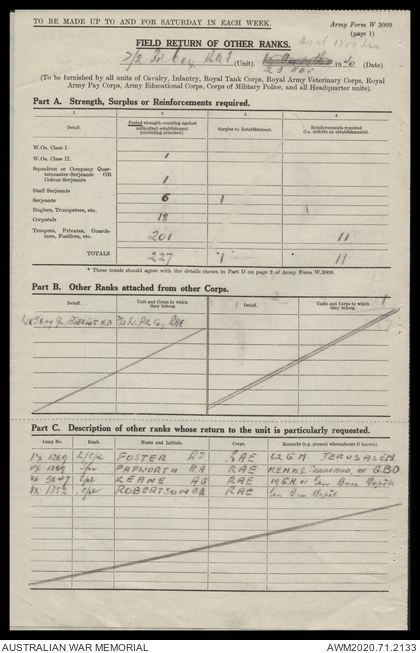 TO BE MADE UP TO AND FOR SATURDAY IN EACH WEEK.
Army Form W 3009
(page 1)
FIELD RETURN OF OTHER RANKS.
2/2 Fd Coy RAE (Unit). 23 Nov 1940 (Date).
(To be furnished by all units of Cavalry, Infantry, Royal Tank Corps, Royal Army Veterinary Corps, Royal
Army Pay Corps, Army Educational Corps, Corps of Military Police, and all Headquarter units).
Part A. Strength, Surplus or Reinforcements required.
1 2 3 4
Detail. Posted strength counting against authorized establishment (excluding attached). Surplus to Establishment. Reinforcements required (i.e. deficits on establishments).
W.Os. Class I.
W.Os. Class II. 1
Squadron or Company Quar-
termaster-Serjeants OR
Colour-Serjeants 1
Staff Serjeants
Serjeants 6 1
Buglers, Trumpeters, etc.
Corporals 18
Troopers, Privates, Guards-
men, Fusiliers, etc. 201 11
TOTALS 227 1 11
* These totals should agree with the details shown in Part D on page 2 of Army Form W.3009.
Part B. Other Ranks attached from other Corps.
Detail. Unit and Corps to which they belong. Detail. Unit and Corps to which they belong.
RAE
Part C. Description of other ranks whose return to the unit is particularly requested.
Army No. Rank. Name and Initials. Corps. Remarks (e.g. present whereabouts if known).
1269 L/Cpl FOSTER RAE 62 G.H. JERUSALEM
1289 Spr PAPWORTH RAE GBD
Spr KEANE RAE Base Depot
1352 Spr ROBERTSON RAE Base Depot
AUSTRALIAN WAR MEMORIAL
AWM2020.71.2133